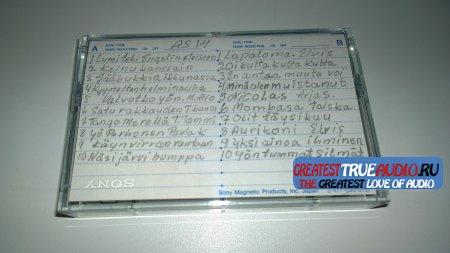 A DATE/TIME B DATE/TIME
NOISE REDUCTION ON OFF AS 14 NOISE REDUCTION ON OFF
1 Lumiteki Engelin eteiseen
2 Keinu kanssain
3 Jääkukkia ikkunassa
4 Kyynelten helminauha
5 Valvotko yön. M. Aro
6 Satu rakkauden T. kansa
7 Tango Merellä T. Tammi
8 Yö Perhonen Paula K
9 Käyn virran rantaan
10 Näsijärvi humppa
1 Lapaloma. Elvis
2 Oi kulta kulta kulta
3 En antaa muuta voi
4 Minä olen muistanut
5 Nicolas Arjas.
6 Mombasa Taiska
7 Olit täysikuu
8 Aurikoni Elvis
9 Yksi ainoa ihminen
10 Yön tummat silmät
SONY
Sony Magnetic Products, Inc. Japan
GREATESTTRUEAUDIO.RU
THE GREATEST LOVE OF AUDIO